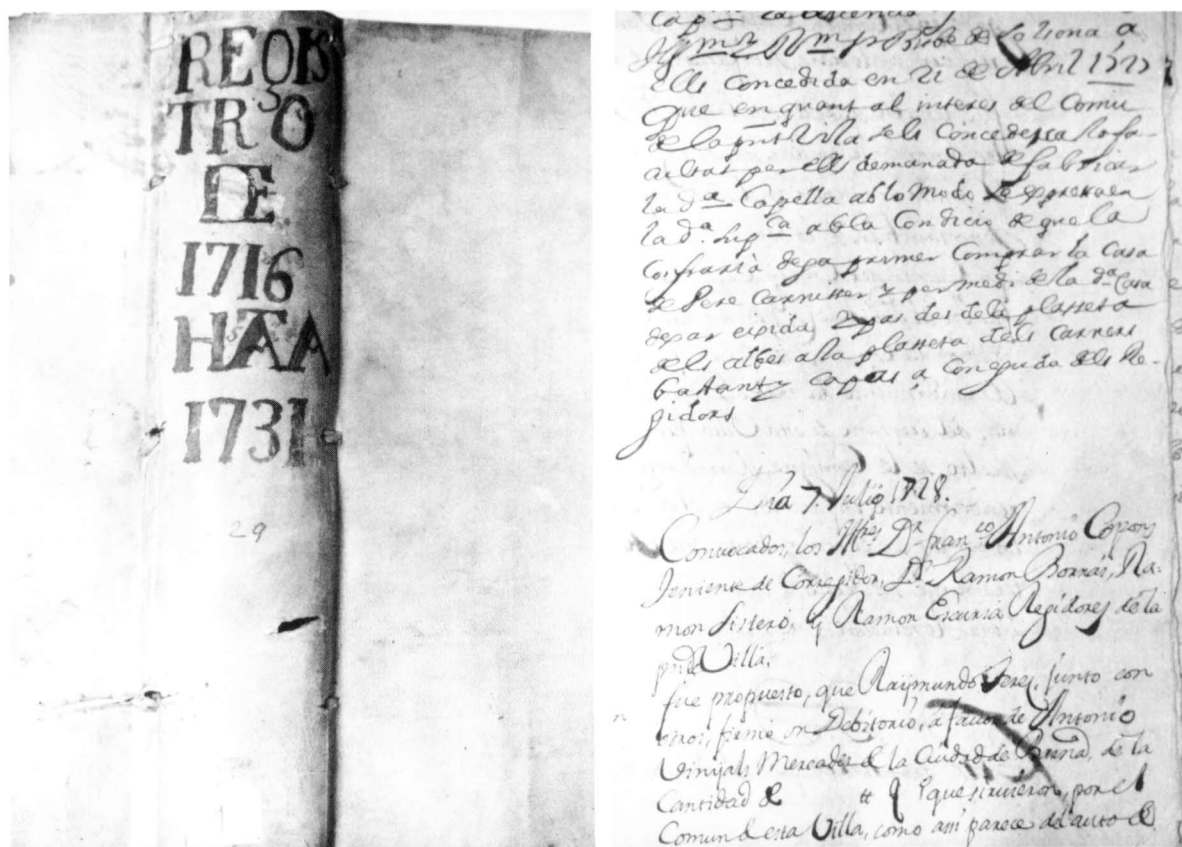 REGIS
TRO
DE
1716
HASTA
1731
29
ells Concedida en 21 de Abril 1727
que en quant al interes del Comu
de la pnt Vila sels Concedesca la fa-
cultat per ells demanada de fabricar
la d.ª Capella ab lo modo se expressa en
la d.ª sup.ca ab la Condicio de que la
Confraria dega primer Comprar la Casa
de Pere Carnisser y per medi de la d.ª Casa
degar exida, y pas des de la plasseta
dels albes a la plasseta dels Carners
bastant y capas á Coneguda dels Re-
gidors
Dia 7. Julio 1728.
Convocados, los M.res D.r Fran.co Antonio Copons
Teniente de Corregidor, D.r Ramon Borrás, Ra-
mon Sisteró, y Ramon Escursá Regidores de la
pnte Villa.
fue propuesto, que Raymundo Junto con
otros, firmó un Debitorio, á favor de Antonio
Vinyals Mercader de la Ciudad de de la
Cantidad de tt que sirvieron, por el
Comun de esta Villa, como assi parece del auto de